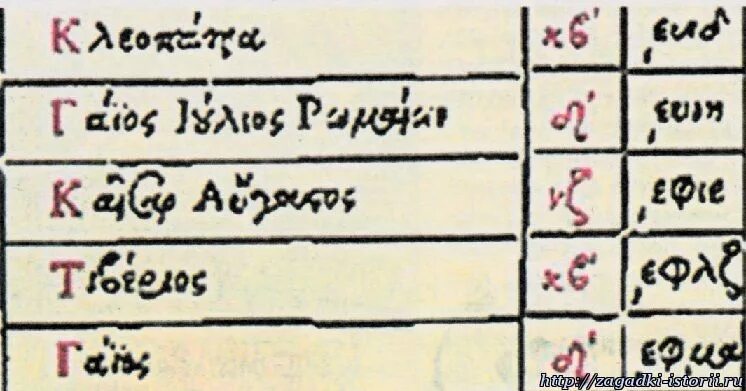 Κλεοπάτρα κβ' ͵ευνδ
Γάϊος Ιούλιος Ρωμαίων δ' ͵ευνη
Καῖσαρ Αὔγουστος νζ ͵εφιε
Τιβέριος κβ' ͵εφλζ
Γάϊος δ' ͵εφμα
http://zagadki-istorii.ru